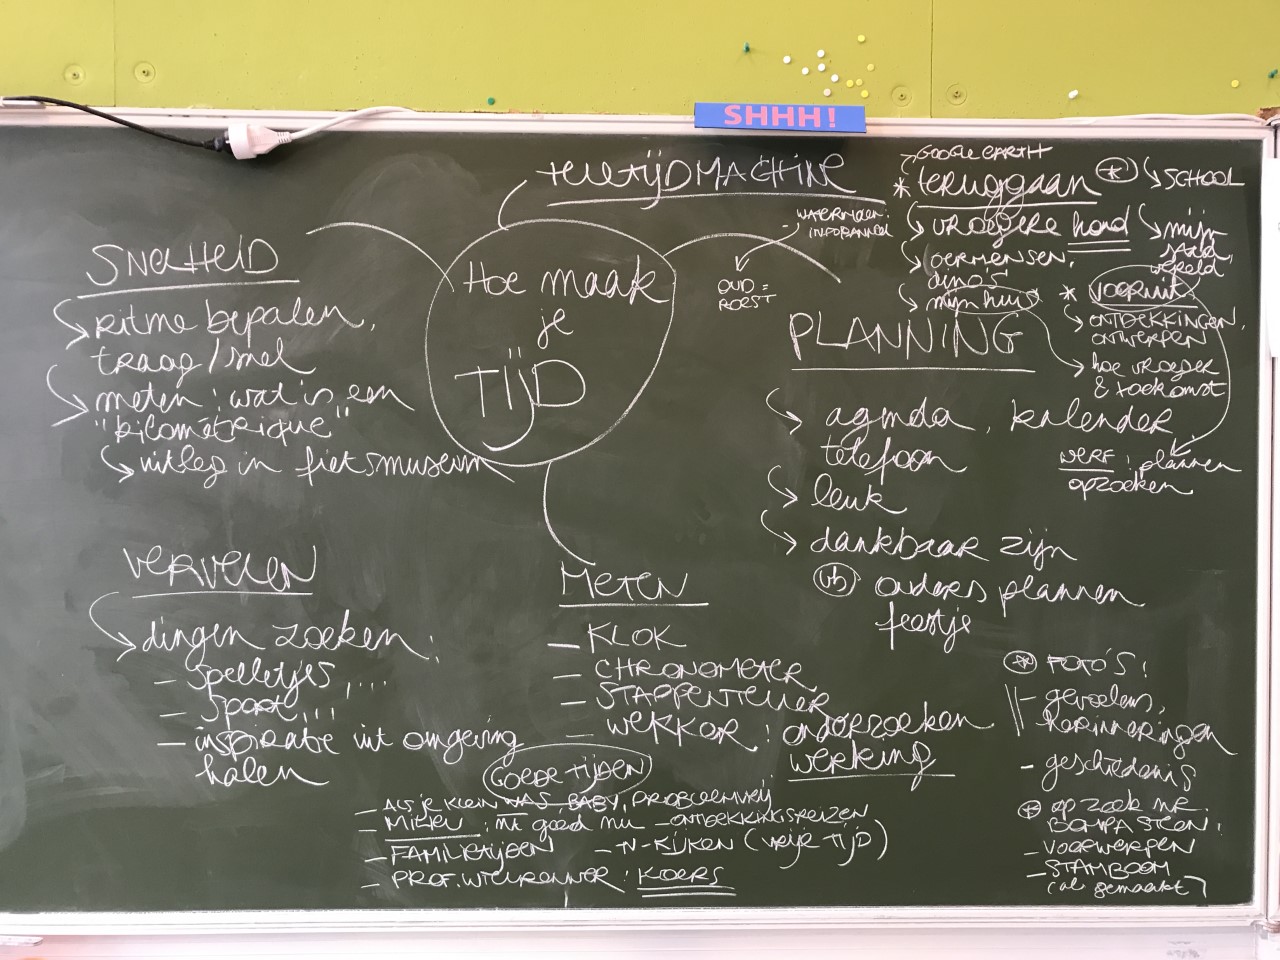 SHHH!
TELETIJDMACHINE
Hoe maak
je
TIJD
SNELHEID
ritme bepalen,
traag/snel
meten: wat is een
"kilometrique"
uitleg in fietsmuseum
VERVELEN
dingen zoeken:
- spelletjes, ...
- Sport, ...
- inspiratie uit omgeving
halen
METEN
- KLOK
- CHRONOMETER
- STAPPENTELLER
- WEKKER: onderzoeken
werking
GOEDE TIJDEN
- ALS JE KLEIN WAS, BABY, PROBLEEMVRIJ
- MILIEU: nt goed nu
- ONTDEKKINGSREIZEN
- FAMILIETIJDEN
- TV-KIJKEN (VRIJE TIJD)
- PROF. WIELRENNER: KOERS
WATERMOLEN:
INFOPANNEEL
OUD =
ROEST
PLANNING
agenda, kalender
telefoon
leuk
dankbaar zijn
vb ouders plannen
feestje
GOOGLE EARTH
* teruggaan
vroegere hond
oermensen,
dino's
mijn huis
* SCHOOL
mijn
stad,
wereld
* vooruit
ONTDEKKINGEN,
ONTWERPEN
hoe vroeger
& toekomst
WERF: plannen
opzoeken
* FOTO'S!
- gevoelens,
herinneringen
- geschiedenis
* op zoek nr.
- VOORWERPEN
- STAMBOOM
(al gemaakt)